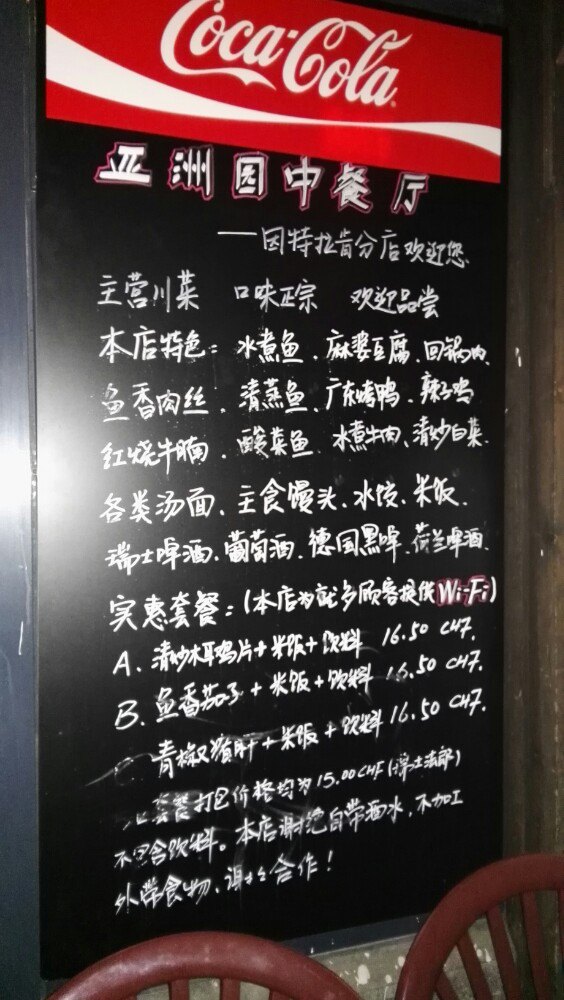 Coca-Cola
亚洲园中餐厅
——因特拉肯分店欢迎您.
主营川菜 口味正宗 欢迎品尝
本店特色: 水煮鱼、麻婆豆腐、回锅肉
鱼香肉丝、清蒸鱼、广东烤鸭、辣子鸡
红烧牛腩、酸菜鱼、水煮牛肉、清炒白菜.
各类汤面、主食馒头、水饺、米饭.
瑞士啤酒、葡萄酒、德国黑啤、荷兰啤酒.
实惠套餐:(本店为就多顾客提供Wi-Fi)
A. 清炒木耳鸡片+米饭+饮料 16.50 CHF.
B. 鱼香茄子+米饭+饮料 16.50 CHF.
青椒猪肝+米饭+饮料 16.50 CHF.
套餐打包价格均为15.00CHF(瑞士法郎)
不包含饮料。本店谢绝自带酒水,不加工
外带食物,谢谢合作!